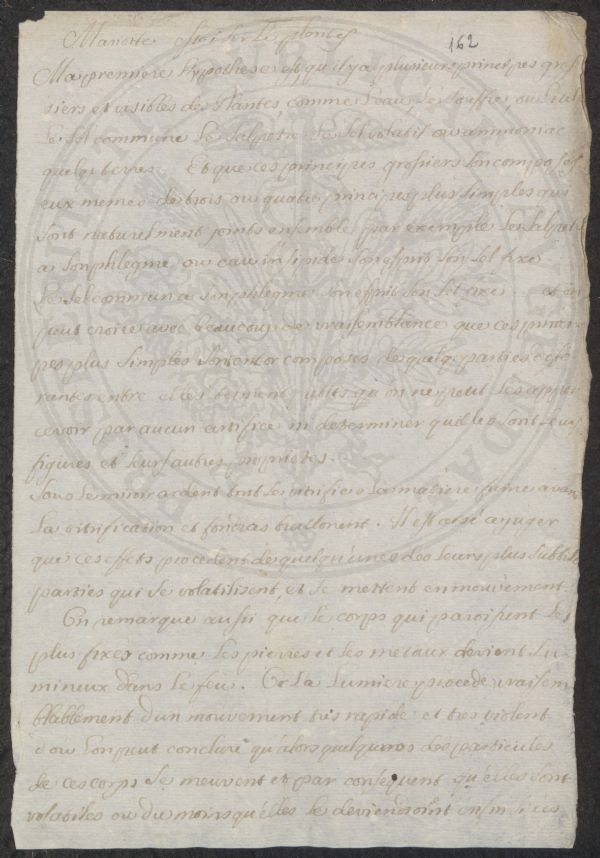 Mariotte essai sur les plantes
162
Ma premiere hypothese est qu'il y a plusieurs principes gros
siers et visibles des Plantes comme l'eau, le souffre, ou l'huile
le sel commun le salpetre le sel volatil ou ammoniac
quelq terres. Et que ces principes grossiers son composes
eux memes de trois ou quatre principes plus simples qui
sont naturelment joints ensemble par exemple le salpetre
a son phlegme ou eau insipide son esprit son sel fixe
le sel commun a son phlegme son esprit son sel fixe et on
peut croire avec beaucoup de vraisemblance que ces princi
pes plus simples sont encor composes de quelq parties diffe
rantes entre elles si qu'on ne peut les apper
cevoir par aucun artifice ni determiner quelles sont leurs
figures et leurs autres proprietes.
sous le miroir ardent la matiere fume avant
la vitrification et brillonent. Il est aisé a juger
que ces effets procedent de quelqu'unes des leurs plus subtiles
parties qui se volatilisent et se mettent en mouvement
On remarque aussi que le corps qui paroissent les
plus fixes comme les pierres et les metaux devient lu
mineux dans le feu. Or la Lumiere procede vraisem
blablement d'un mouvement tres rapide et tres violent
d'ou l'on peut conclure qu'alors quelqunes des particules
de ces corps se meuvent et par consequent qu'elles sont
volatiles ou du moins qu'elles le deviendroint enfin si ces